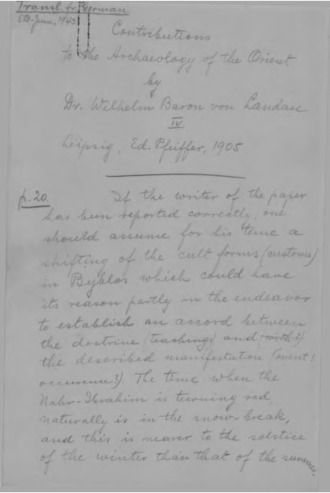 Transl. fr. German
Contributions
to the Archaeology of the Orient
by
Dr. Wilhelm Baron von Landau
IV
Leipzig, Ed. Pfeiffer, 1905
p. 20. If the writer of the paper
has been reported correctly, one
should assume for his time a
shifting of the cult forms (customs)
in Byblos which could have
its reason partly in the endeavor
to establish an accord between
the doctrine (teachings) and (with?)
the described manifestation (event?
occurrence?). The time when the
Nahr-Ibrahim is turning red
naturally is in the snow-break,
and this is nearer to the solstice
of the winter than that of the summer,